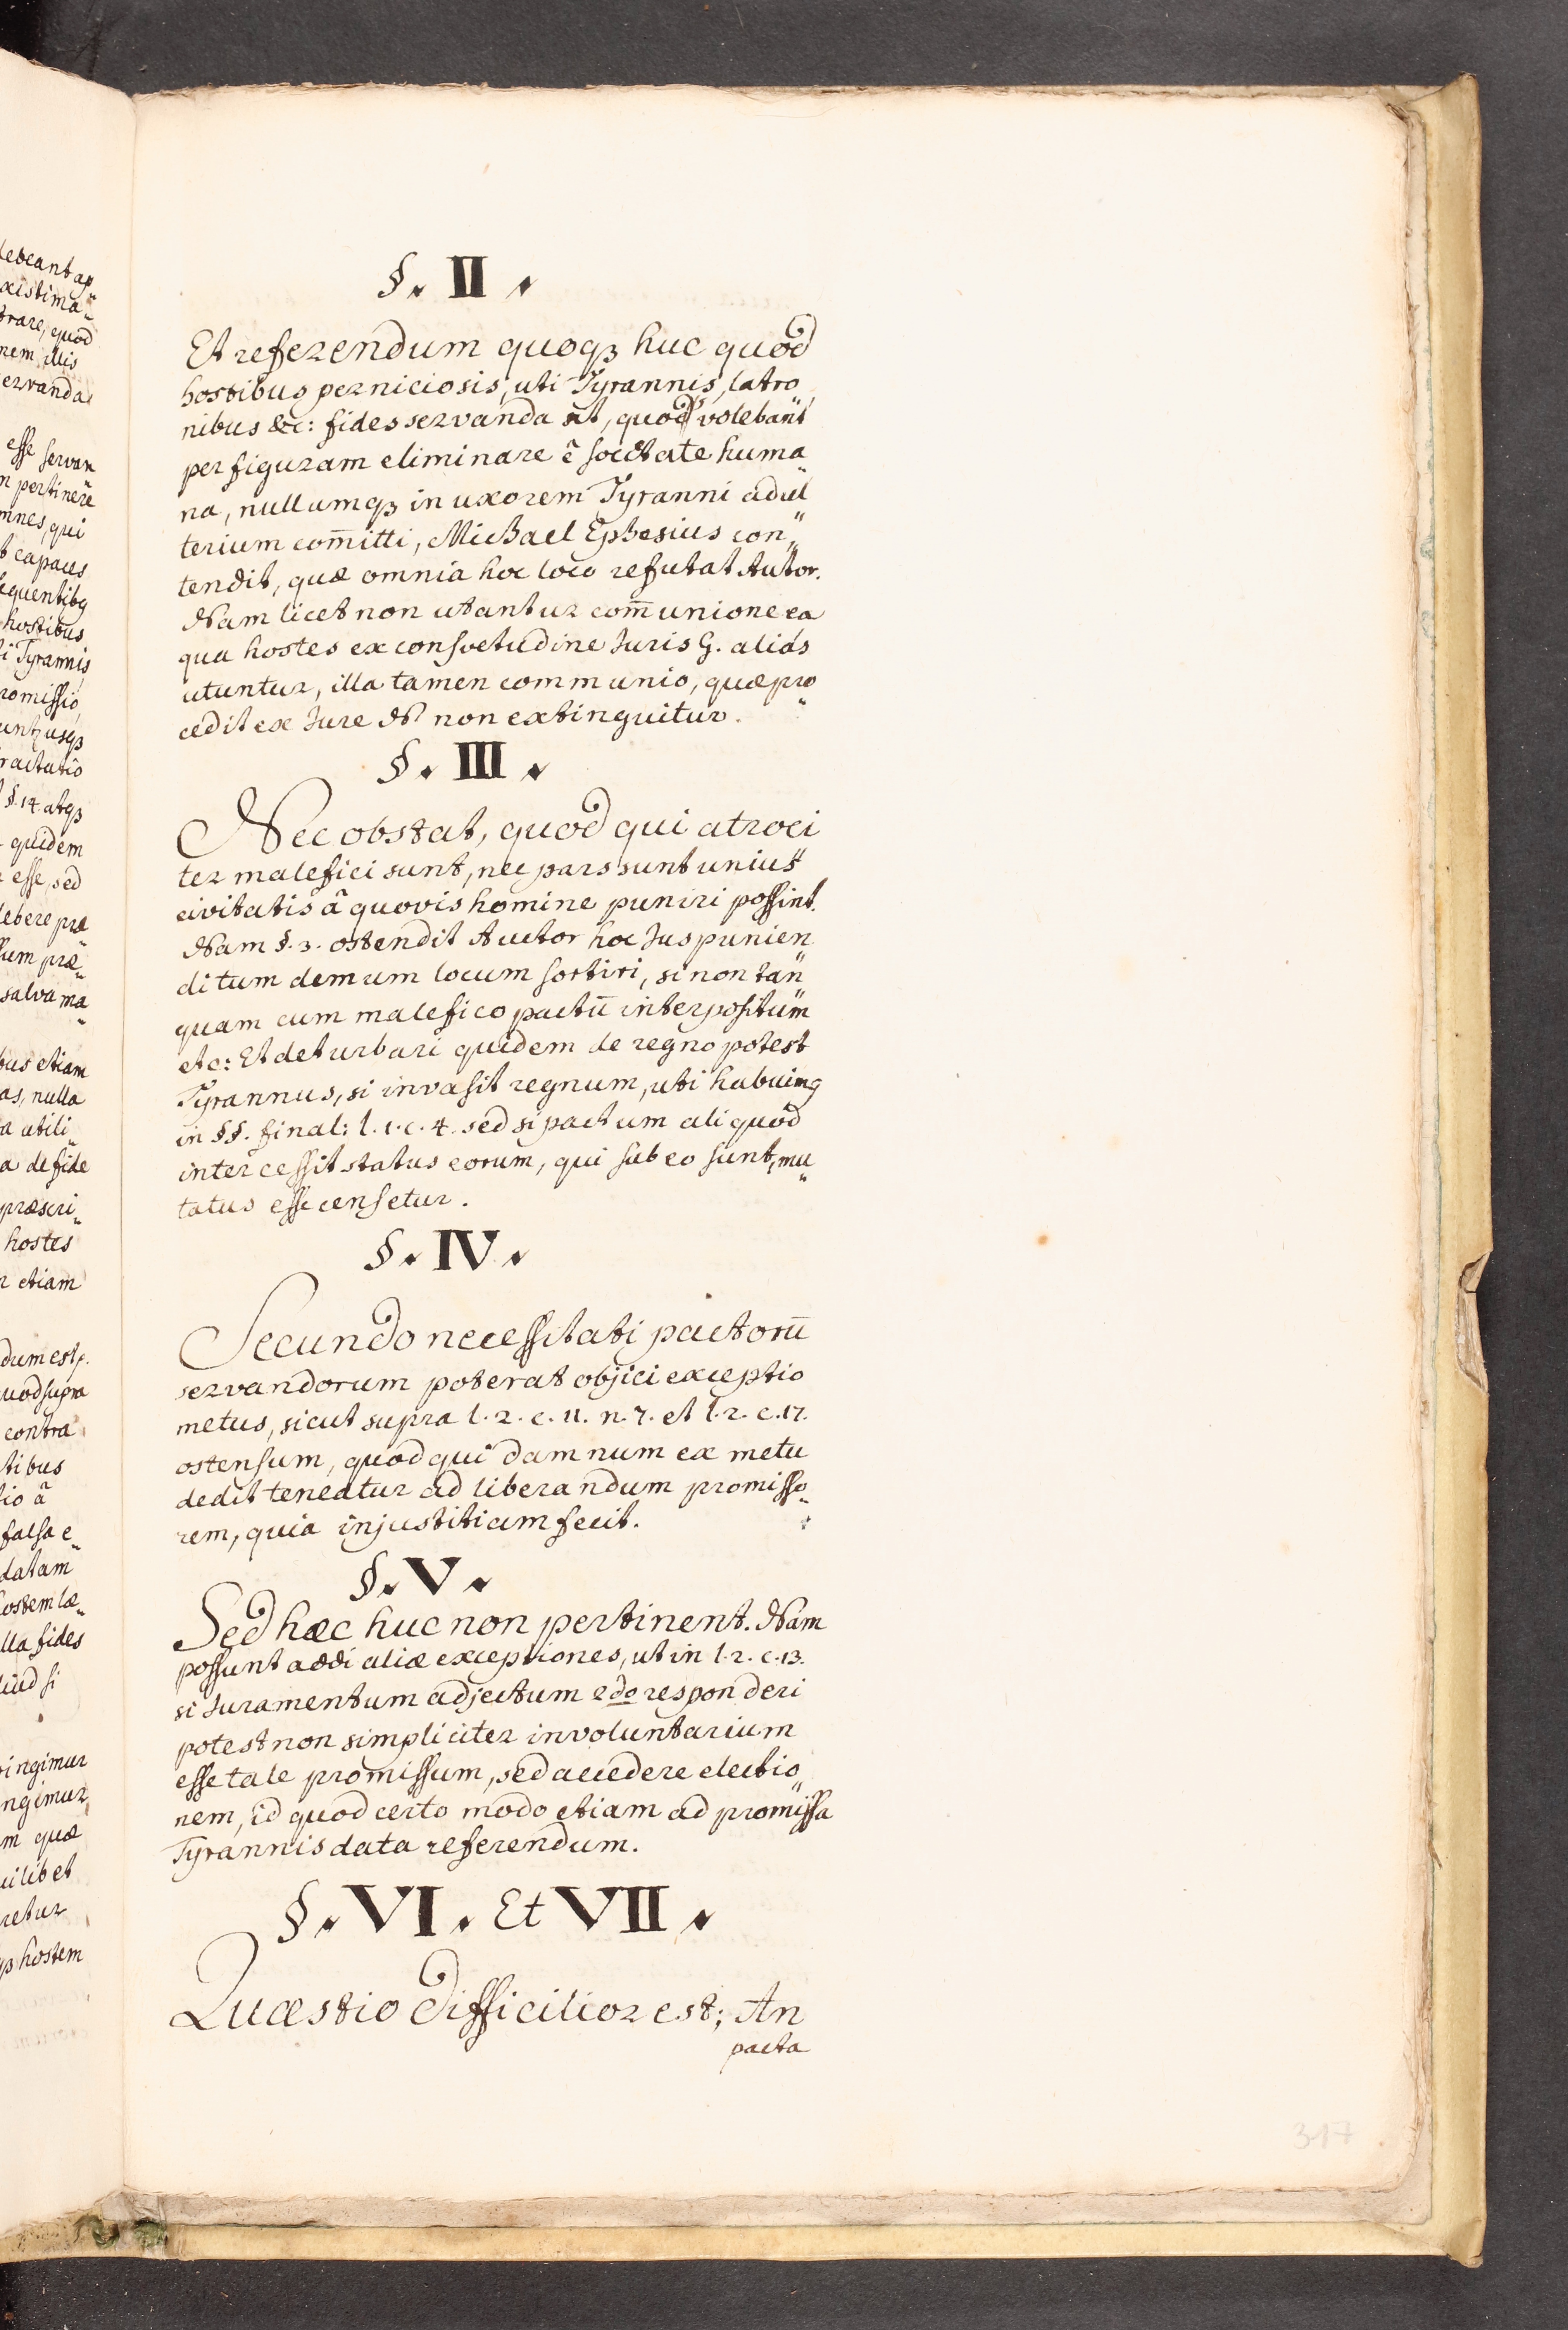 §. II.
Et referendum quoqȝ huc quod
hostibus perniciosis, uti Tyrannis, latro„
nibus &c: fides servanda sit, quod volebant
per figuram eliminare è societate huma„
na, nullumqȝ in uxorem Tyranni adul„
terium com̄itti, Michael Ephesius con„
tendit, quæ omnia hoc loco refutat Autor.
Nam licet non utantur com̄unione ea
qua hostes ex consvetudine Juris G. aliàs
utuntur, illa tamen communio, quæ pro„
cedit ex Jure N non extinguitur.
§. III.
Nec obstat, quod qui atroci„
ter malefici sunt, nec pars sunt unius
civitatis â quovis homine puniri possint.
Nam §. 3. ostendit Auctor hoc Jus punien„
di tum demum locum sortiri, si non tan„
quam cum malefico pactū interpositum
etc: Et deturbari quidem de regno potest
Tyrannus, si invasit regnum, uti habuimꝯ
in §§. final: l. 1. c. 4. sed si pactum aliquod
intercessit status eorum, qui sub eo sunt, mu„
tatus esse censetur.
§. IV.
Secundo necessitati pactorū
servandorum poterat objici exceptio
metus, sicut supra l. 2. c. 11. n. 7. et l. 2. c. 17.
ostensum, quod qui damnum ex metu
dedit teneatur ad liberandum promisso„
rem, quia injustitiam fecit.
§. V.
Sed hæc huc non pertinent. Nam
possunt addi aliæ exceptiones, ut in l. 2. c. 13.
si Juramentum adjectum 2do responderi
potest non simpliciter involuntarium
esse tale promissum, sed accedere electio„
nem, id quod certo modo etiam ad promissa
Tyrannis data referendum.
§. VI. Et VII.
Quæstio difficilior est; An
pacta
317